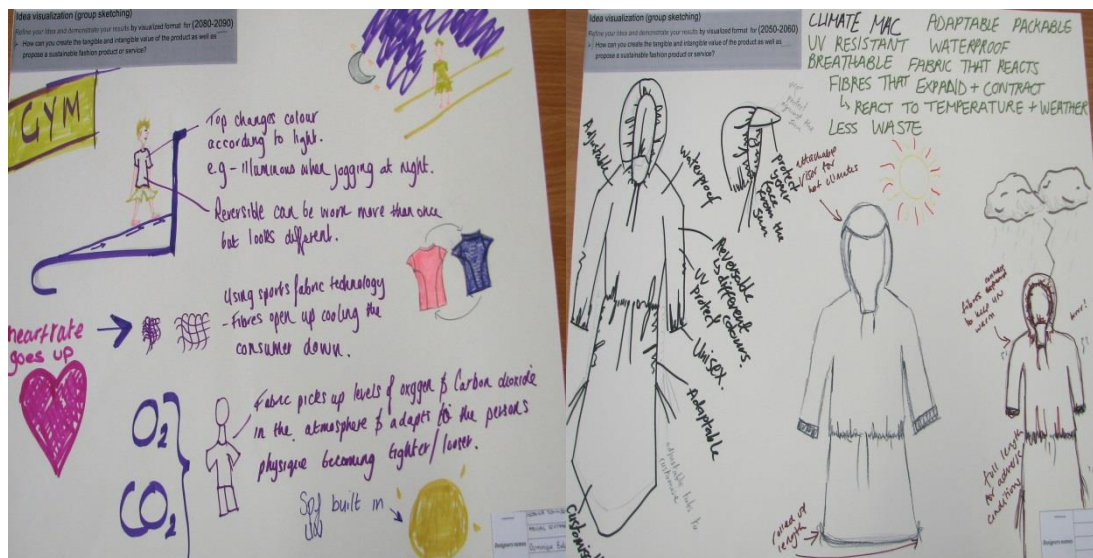 Idea visualization (group sketching)
Refine your idea and demonstrate your results by visualized format for (2080-2090)
How can you create the tangible and intangible value of the product as well as
propose a sustainable fashion product or service?
GYM
Top changes colour
according to light.
e.g - illuminous when jogging at night.
Reversible can be worn more than once
but looks different.
Using sports fabric technology
- Fibres open up cooling the
consumer down.
heartrate
goes up
O2
CO2
Fabric picks up levels of oxygen & Carbon dioxide
in the atmosphere & adapts for the persons
physique becoming tighter/looser.
Spf built in
Idea visualization (group sketching)
Refine your idea and demonstrate your results by visualized format for (2050-2060)
How can you create the tangible and intangible value of the product as well as
propose a sustainable fashion product or service?
CLIMATE MAC ADAPTABLE PACKABLE
UV RESISTANT WATERPROOF
BREATHABLE FABRIC THAT REACTS
FIBRES THAT EXPAND + CONTRACT
REACT TO TEMPERATURE + WEATHER
LESS WASTE
Adjustable
waterproof
protect
your
face
from the
sun
attachable
visor for
hot climates
Reversable
is different
colours.
UV protect
Unisex.
Adaptable
adjustable
customise
rolled up
length
fibres
expand
to keep in
warm
full length
for adverse
conditions